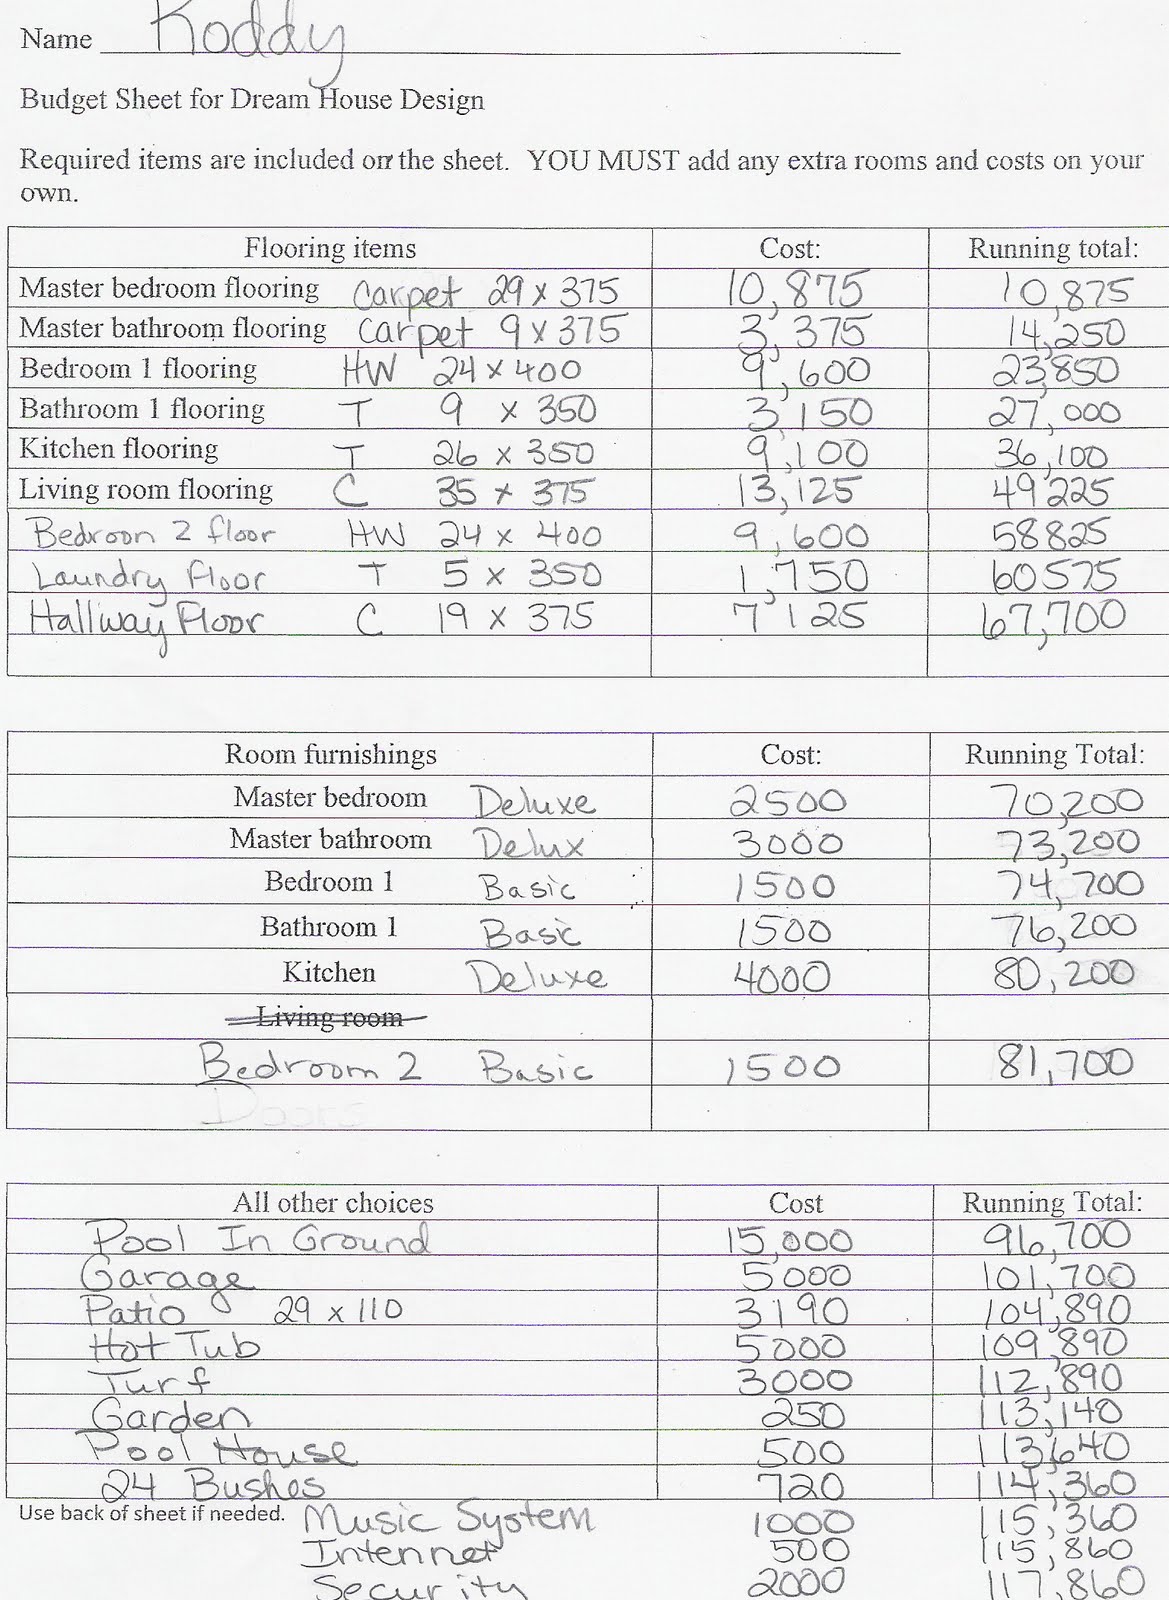 Name Koddy
Budget Sheet for Dream House Design
Required items are included on the sheet. YOU MUST add any extra rooms and costs on your
own.
Flooring items Cost: Running total:
Master bedroom flooring Carpet 29 x 375 10,875 10,875
Master bathroom flooring Carpet 9 x 375 3,375 14,250
Bedroom 1 flooring HW 24 x 400 9,600 23,850
Bathroom 1 flooring T 9 x 350 3,150 27,000
Kitchen flooring T 26 x 350 9,100 36,100
Living room flooring C 35 x 375 13,125 49,225
Bedroon 2 floor HW 24 x 400 9,600 58825
Laundry Floor T 5 x 350 1,750 60575
Hallway Floor C 19 x 375 7,125 67,700
Room furnishings Cost: Running Total:
Master bedroom Deluxe 2500 70,200
Master bathroom Delux 3000 73,200
Bedroom 1 Basic 1500 74,700
Bathroom 1 Basic 1500 76,200
Kitchen Deluxe 4000 80,200
Living room
Bedroom 2 Basic 1500 81,700
Doors
All other choices Cost Running Total:
Pool In Ground 15,000 96,700
Garage 5000 101,700
Patio 29 x 110 3190 104,890
Hot Tub 5000 109,890
Turf 3000 112,890
Garden 250 113,140
Pool House 500 113,640
24 Bushes 720 114,360
Use back of sheet if needed. Music System 1000 115,360
Intennet 500 115,860
Security 2000 117,860